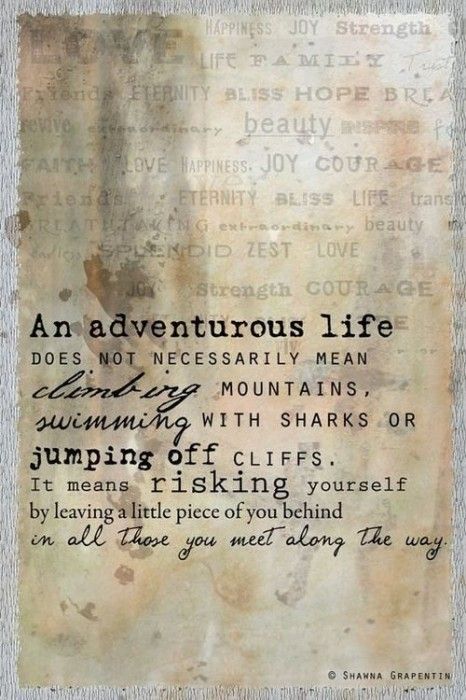 HAPPINESS JOY Strength
LOVE LIFE FAMILY Trust
Friends ETERNITY BLISS HOPE BREA
revive extraordinary beauty INSPIRE fo
FAITH LOVE HAPPINESS JOY COURAGE
Friends ETERNITY BLISS LIFE trans
BREATHTAKING extraordinary beauty
SPLENDID ZEST LOVE
JOY Strength COURAGE
An adventurous life
DOES NOT NECESSARILY MEAN
climbing MOUNTAINS,
swimming WITH SHARKS OR
jumping off CLIFFS.
It means risking yourself
by leaving a little piece of you behind
in all those you meet along the way.
© SHAWNA GRAPENTIN